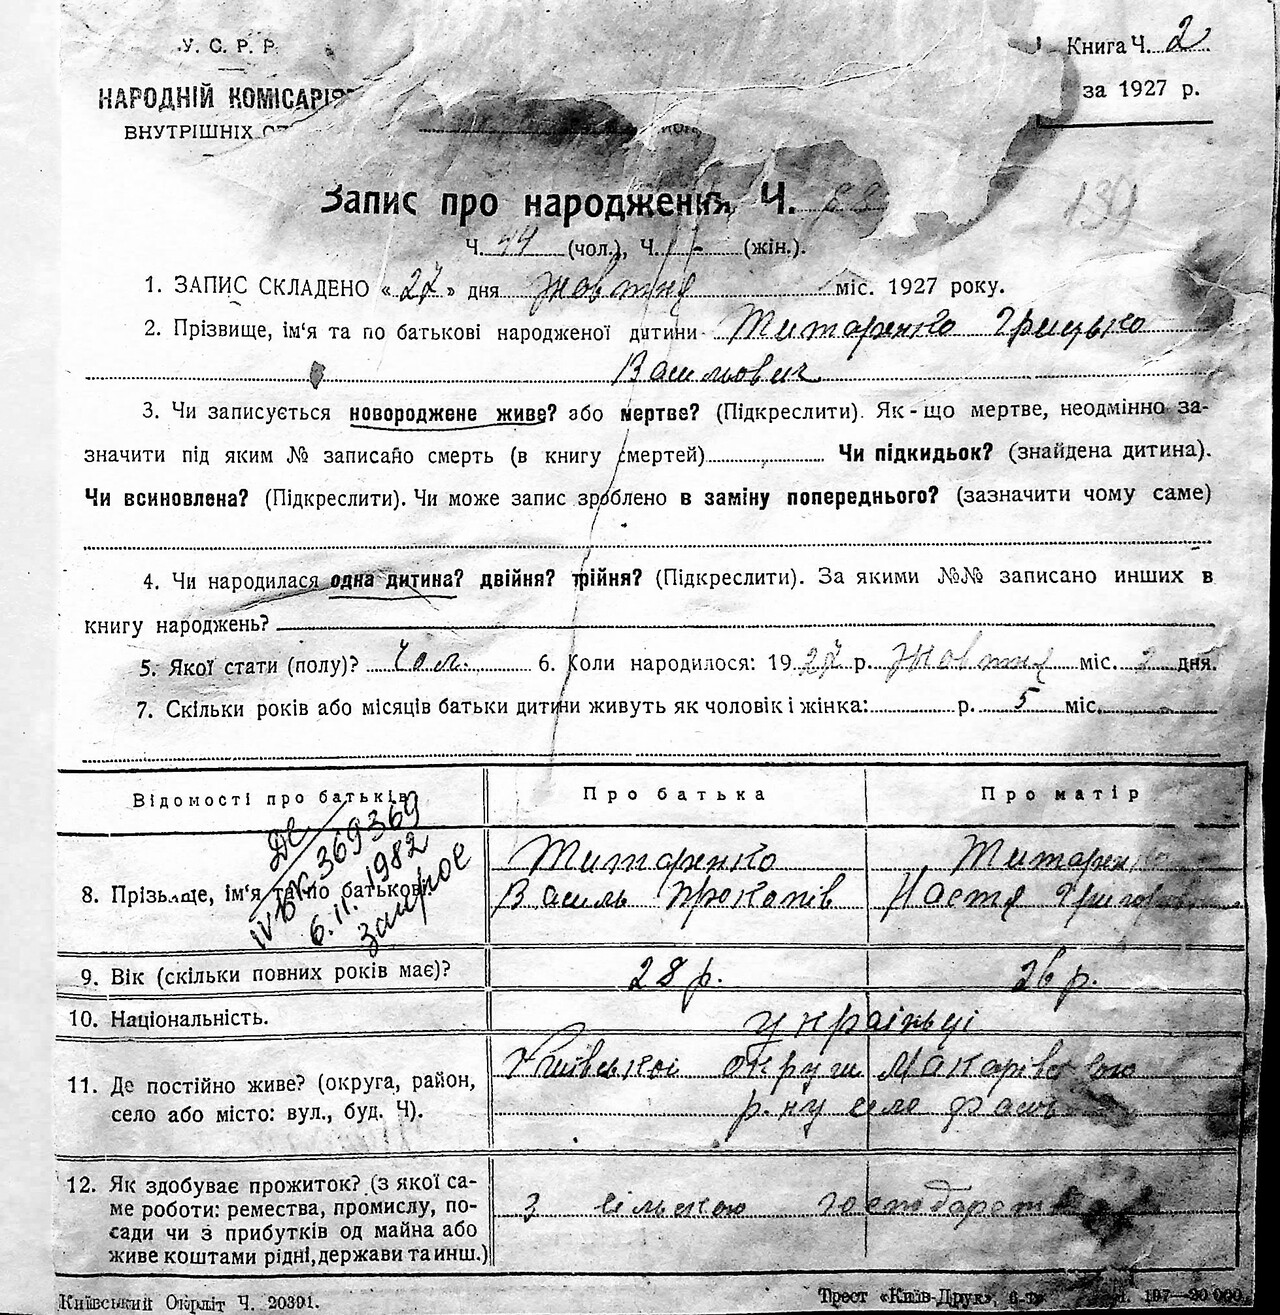 У. С. Р. Р.
Книга Ч. 2.
НАРОДНІЙ КОМІСАРІЯ
за 1927 р.
ВНУТРІШНІХ
Запис про народження Ч.
139
Ч. 44 (чол.), Ч. - (жін.).
1. ЗАПИС СКЛАДЕНО « 27 » дня жовтня міс. 1927 року.
2. Прізвище, ім'я та по батькові народженої дитини Титаренко Грицько
Васильович
3. Чи записується новороджене живе? або мертве? (Підкреслити). Як-що мертве, неодмінно за-
значити під яким № записано смерть (в книгу смертей) Чи підкидьок? (знайдена дитина).
Чи всиновлена? (Підкреслити). Чи може запис зроблено в заміну попереднього? (зазначити чому саме)
4. Чи народилася одна дитина? двійня? трійня? (Підкреслити). За якими №№ записано инших в
книгу народжень?
5. Якої стати (полу)? Чол. 6. Коли народилося: 19 27 р. Жовтня міс. 2 дня.
7. Скільки років або місяців батьки дитини живуть як чоловік і жінка: р. 5 міс.
Відомості про батьків
Про батька
Про матір
8. Прізвище, ім'я та по батькові
IV 369369
6.II.1982
Титаренко
Василь Прокопів
Титаренко
Настя
9. Вік (скільки повних років має)?
28 р.
26 р.
10. Національність.
українці
11. Де постійно живе? (округа, район,
село або місто: вул., буд. Ч).
Київської округи Макарівського
р-ну село
12. Як здобуває прожиток? (з якої са-
ме роботи: ремества, промислу, по-
сади чи з прибутків од майна або
живе коштами рідні, держави та инш.)
З сільського господарства
Київський Окрліт Ч. 20391.
Трест «Київ-Друк»